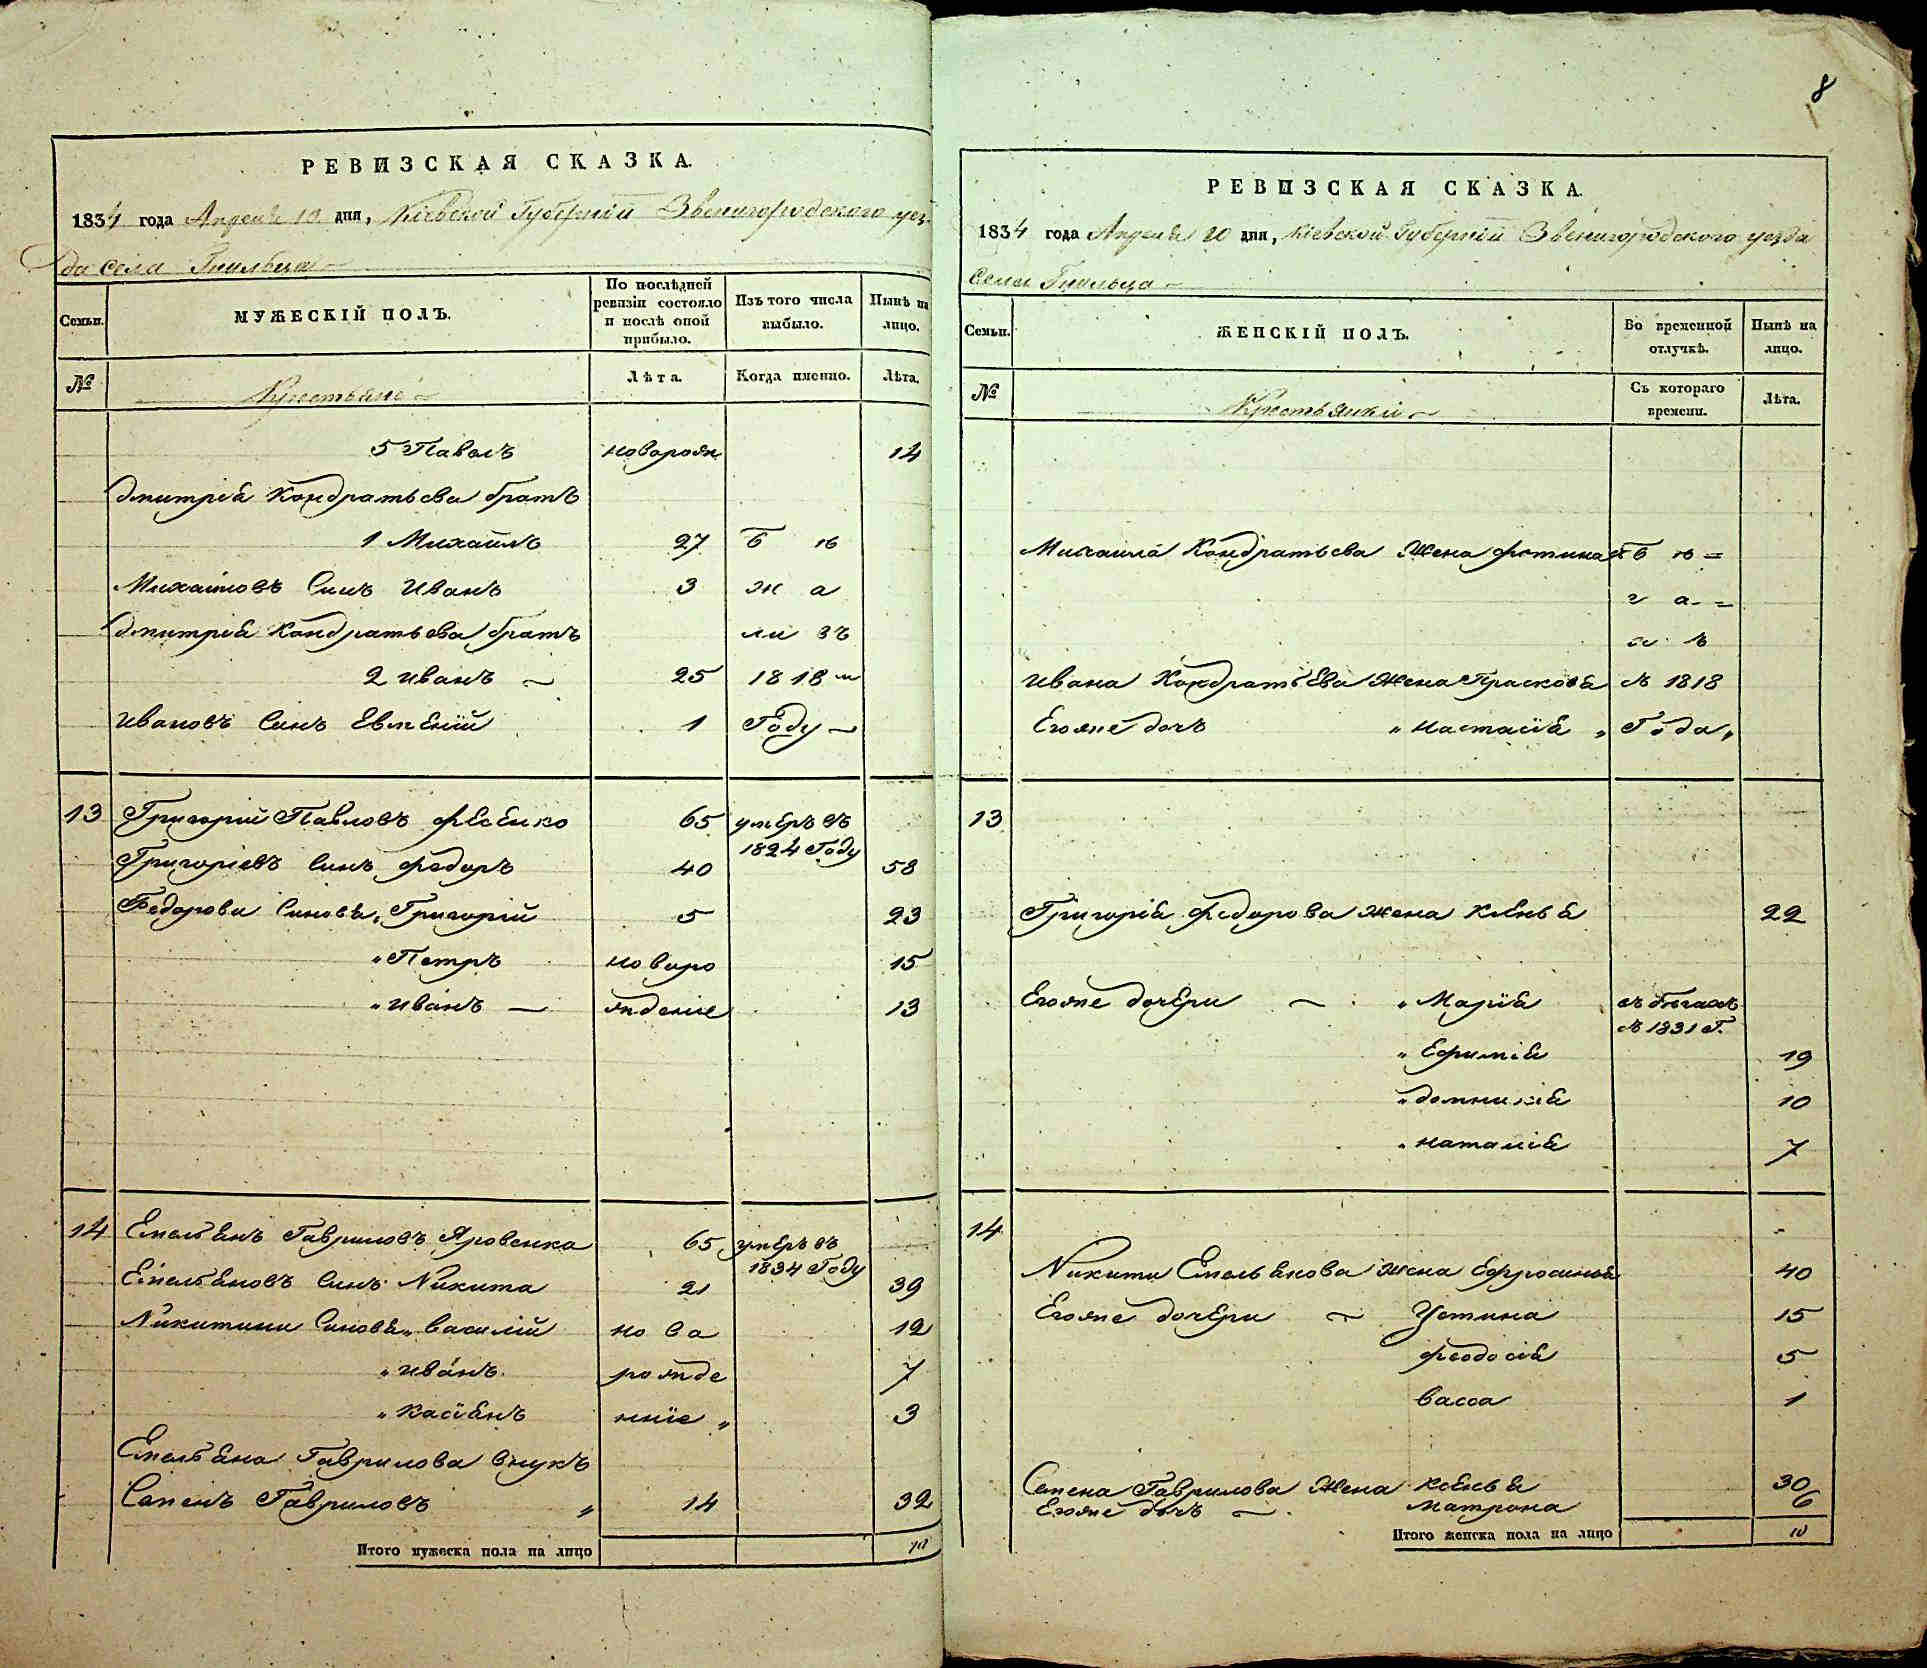 РЕВИЗСКАЯ СКАЗКА.
1834 года Апреля 10 дня, Кіевской Губерніи Звенигородского уез-
да села Гнильца
Семьи.
МУЖЕСКІЙ ПОЛЪ.
По послѣдней ревизіи состояло и послѣ оной прибыло.
Изъ того числа выбыло.
Нынѣ на лицо.
№
Крестьяне
Лѣта.
Когда именно.
Лѣта.
5 Павелъ новорож 14
Дмитрія Кондратьева братъ
1 Михаилъ 27 Б ѣ
Михаиловъ Синъ Иванъ 3 ж а
Дмитрія Кондратьева братъ ли въ
2 Иванъ 25 1818 м
Ивановъ Синъ Евтеній 1 Году
13 Григорій Павловъ Фесенко 65 умеръ въ
1824 Году
Григоріевъ Синъ Федоръ 40 58
Федорова Синовя, Григорій 5 23
"Петръ новоро 15
"Иванъ жденіе 13
14 Емельянъ Гавриловъ Яровенко 65 умеръ въ
1834 Году
Емельяновъ Синъ Никита 21 39
Никитини Синовя " Василій но во 12
"Иванъ рожде 7
"Касіянъ ніе " 3
Емельяна Гаврилова внукъ
Семенъ Гавриловъ " 14 32
Итого мужеска пола на лицо 10
8
РЕВИЗСКАЯ СКАЗКА.
1834 года Апреля 10 дня, Кіевской Губерніи Звенигородского уезда
Села Гнильца
Семьи.
ЖЕНСКІЙ ПОЛЪ.
Во временной отлучкѣ.
Нынѣ на лицо.
№
Крестьянки
Съ котораго времени.
Лѣта.
Михаила Кондратьева Жена Фотина Б ѣ =
г а =
Ивана Кондратьева Жена Прасковя съ 1818
Егоже дочъ "Настасія " Года "
13
Григорія Федорова Жена Ксеня 22
Егоже дочери "Марія въ бегахъ
съ 1831 г.
"Ефимія 19
"Домникія 10
"Наталія 7
14
Никити Емельянова Жена Ефросинья 40
Егоже дочери Устина 15
Феодосія 5
Васса 1
Семена Гаврилова Жена Ксеня 30
Егоже дочъ Матрона 6
Итого женска пола на лицо 10